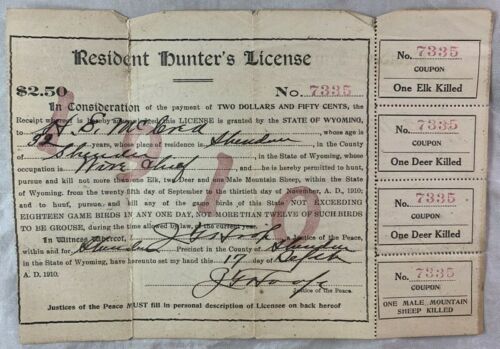 Resident Hunter's License
$2.50 No. 7335
1910
In Consideration of the payment of TWO DOLLARS AND FIFTY CENTS, the
Receipt whereof is hereby this LICENSE is granted by the STATE OF WYOMING,
to whose age is
years, whose place of residence is Sheridan, in the County
of Sheridan in the State of Wyoming, whose
occupation is and he is hereby permitted to hunt,
pursue and kill not more than one Elk, one Deer and one Male Mountain Sheep, within the State of
Wyoming, from the twenty fifth day of September to the thirtieth day of A. D., 1910;
and to hunt, pursue, and kill any of the Birds of this State NOT EXCEEDING
EIGHTEEN GAME BIRDS IN ANY ONE DAY, NOT MORE THAN TWELVE OF SUCH BIRDS
TO BE GROUSE, during the time allowed by law, of the current year.
In Witness Whereof, Justice of the Peace,
within and for Sheridan Precinct in the County of Sheridan
State of Wyoming, have hereunto set my hand this 17 day of Sept
A. D. 1910.
Justice of the Peace.
Justices of the Peace MUST fill in personal description of Licensee on back hereof
No. 7335
COUPON
One Elk Killed
No. 7335
COUPON
One Deer Killed
No. 7335
COUPON
One Deer Killed
No. 7335
COUPON
ONE MALE MOUNTAIN
SHEEP KILLED